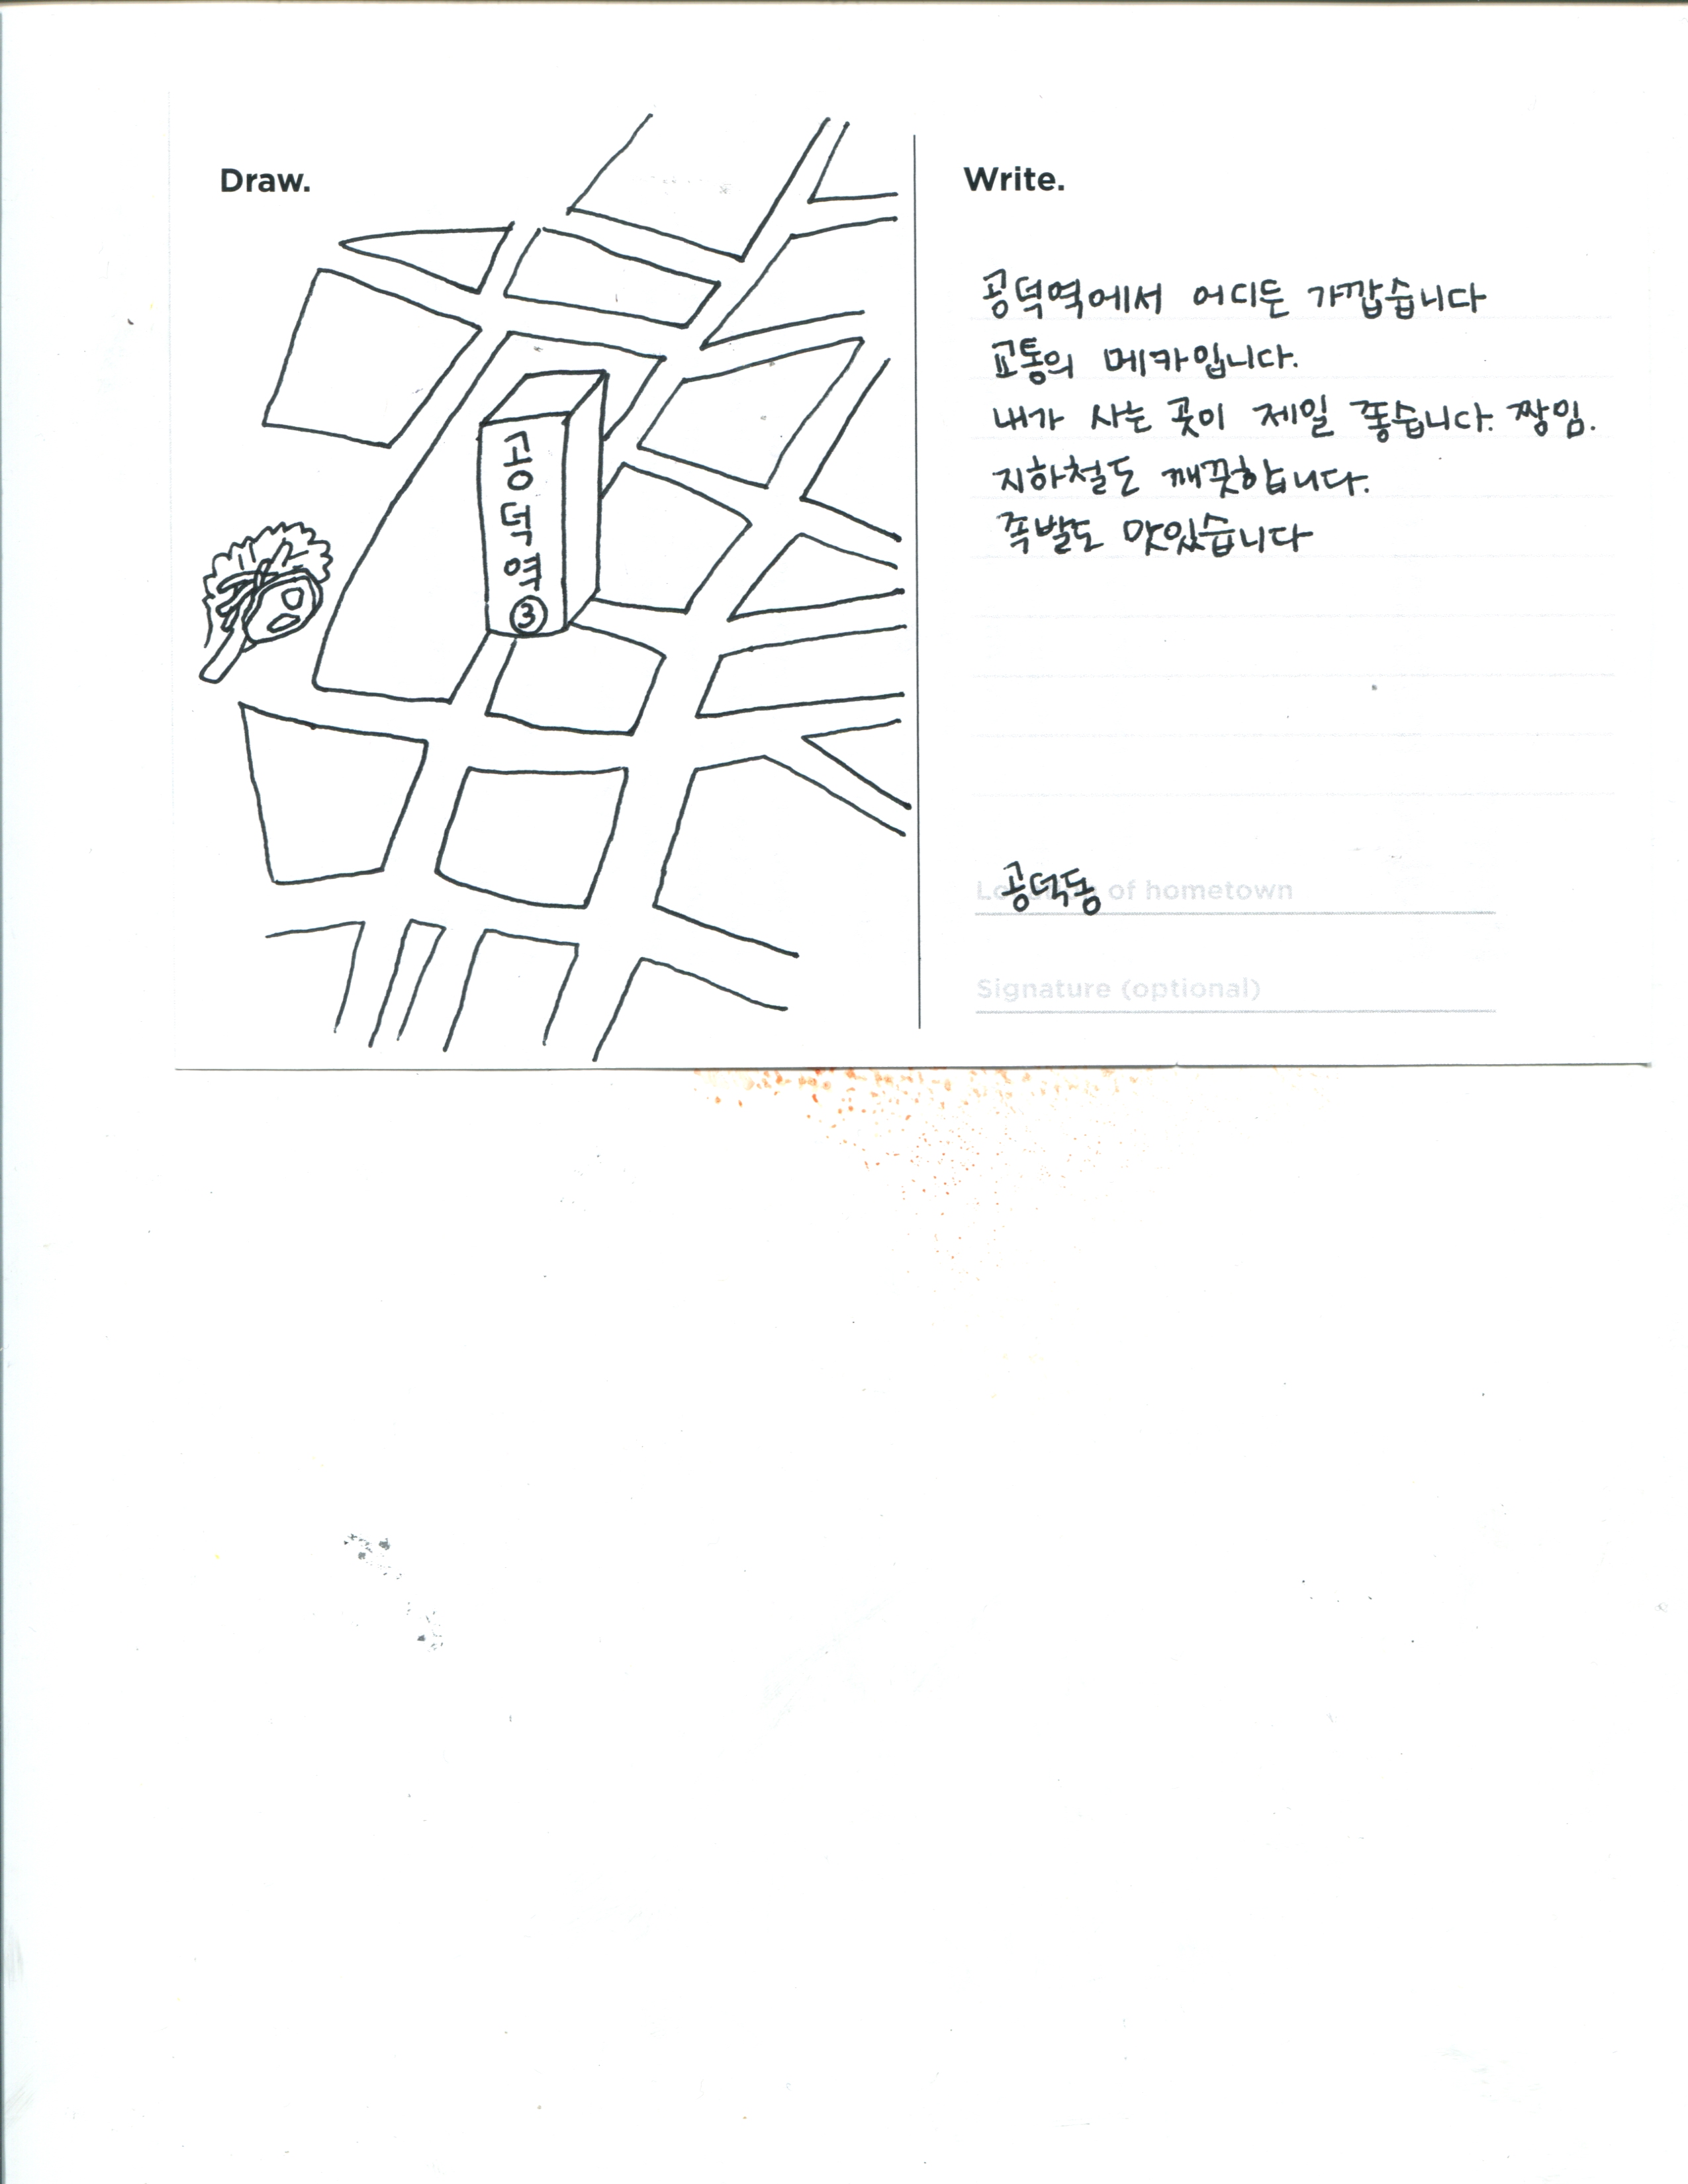 Draw.
공덕역
③
Write.
공덕역에서 어디든 가깝습니다
교통의 메카입니다.
내가 사는 곳이 제일 좋습니다. 짱임.
지하철도 깨끗합니다.
족발도 맛있습니다
공덕동
Location of hometown
Signature (optional)